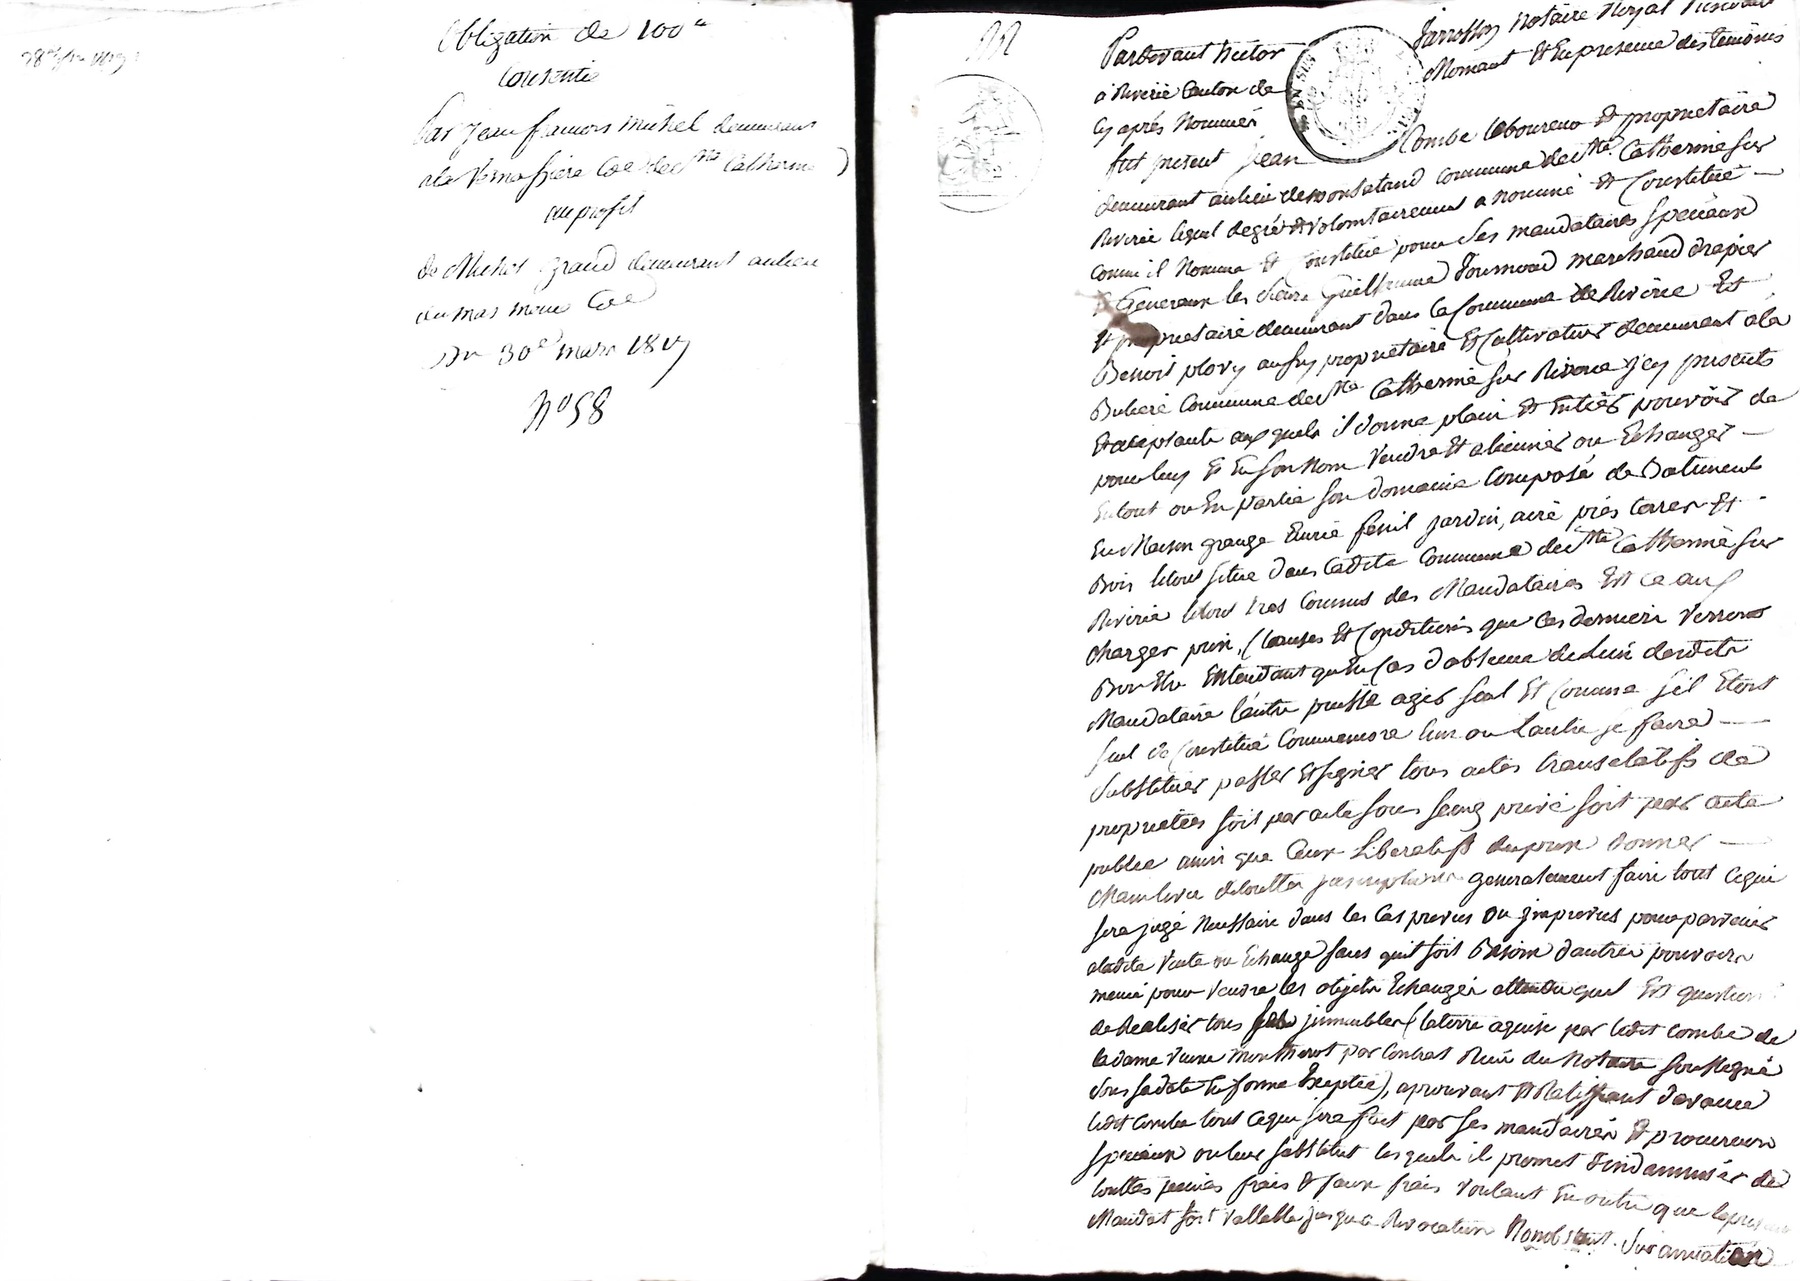 Obligation de 100ᶠ
Consentie
Par Jean françois Michel demeurant
ala Vernassiere Coe de Ste Catherine
au profit
de Michel grand demeurant au lieu
du mas Coe
Du 30e mars 1817
No 58
Pardevant Victor Jarrosson Notaire Royal Residant
à Riverie Canton de Mornant Et En presence des temoins
Cy après Nommés
fut present Jean Combe laboureur et proprietaire
demeurant au lieu de commune de Ste Catherine sur
Riverie lequel de gré et volontairement a nommé et Constitué
comme il Nomme et Constitue pour Ses mandataires speciaux
et Generaux les sieurs Guillaume marchand drapier
et proprietaire demeurant dans la Commune de Riverie Et
Benoit aussy proprietaire Et Cultivateur demeurant a la
Commune de Ste Catherine sur Riverie jcy presents
et acceptants auxquels il donne plain et Entier pouvoir de
pour luy et En son Nom Vendre Et alienner ou Echanger
En tout ou En partie son domaine Composé de Batiment
En Maison grange Ecurie fenil jardin, aire prés terres Et
Bois le tout situe dans ladite Commune de Ste Catherine sur
Riverie le tout tres Connus des Mandataires Et ce aux
charges prix, Clauses Et Conditions que ces derniers verront
Bon Etre Entendant qu'En Cas d'absence de l'un desdits
Mandataire l'autre puisse agir seul Et Comme s'il Etoit
seul de Constitué Comme encore l'un ou l'autre se faire
Substituer passer Et signer tous actes translatifs de
proprietées soit par acte sous seing privé soit par acte
public ainsi que Ceux Liberatifs du prix donner
Main levée de toutes jnscriptions generalement faire tout ce qui
sera jugé Necessaire dans les Cas prevus ou jmprevus pour parvenir
aladite Vente ou Echange sans quil soit Besoin d'autres pouvoirs
meme pour vendre les objets Echangés attendu quil Est question
de Realiser tous ses jmmeubles (la terre aquise par ledit Combe de
la dame Veuve par Contrat Recu du Notaire soussigné
sous sa date En forme Exeptée), aprouvant et Ratiffiant d'avance
ledit Combe tout ce qui sera fait par ses mandaires et procureurs
speciaux ou leur substitut lesquels il promet d'indamniser de
touttes peines frais et faux frais Voulant En outre que le present
Mandat soit vallable jusqua Revocation Nonobstant Surannation